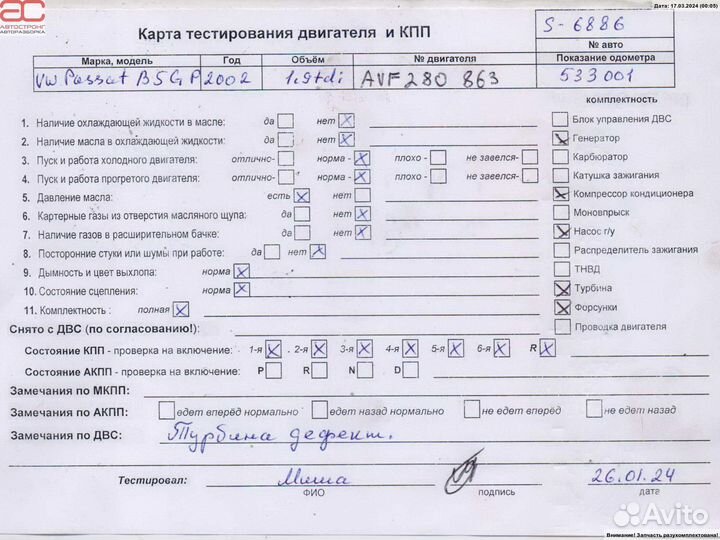 Дата: 17.03.2024 (00:05)
АС
АВТОСТРОНГ
АВТОРАЗБОРКА
Карта тестирования двигателя и КПП
S-6886
№ авто
Марка, модель Год Объём № двигателя Показание одометра
VW Passat B5 GP 2002 1.9tdi AVF 280 863 533001
комплектность
1. Наличие охлаждающей жидкости в масле: да нет X
Блок управления ДВС
2. Наличие масла в охлаждающей жидкости: да нет X
X Генератор
3. Пуск и работа холодного двигателя: отлично- норма - X плохо - не завелся-
Карбюратор
4. Пуск и работа прогретого двигателя: отлично- норма - X плохо - не завелся-
Катушка зажигания
5. Давление масла: есть X нет
X Компрессор кондиционера
6. Картерные газы из отверстия масляного щупа: да нет X
Моновпрыск
7. Наличие газов в расширительном бачке: да нет X
X Насос г/у
8. Посторонние стуки или шумы при работе: да нет X
Распределитель зажигания
9. Дымность и цвет выхлопа: норма X
ТНВД
10. Состояние сцепления: норма X
X Турбина
11. Комплектность : полная X
X Форсунки
Снято с ДВС (по согласованию!):
Проводка двигателя
Состояние КПП - проверка на включение: 1-я X 2-я X 3-я X 4-я X 5-я X 6-я X R X
Состояние АКПП - проверка на включение: P R N D
Замечания по МКПП:
Замечания по АКПП: едет вперёд нормально едет назад нормально не едет вперёд не едет назад
Замечания по ДВС: Турбина дефект.
Тестировал: Миша 26.01.24
ФИО подпись дата
Avito
Внимание! Запчасть разукомплектована!